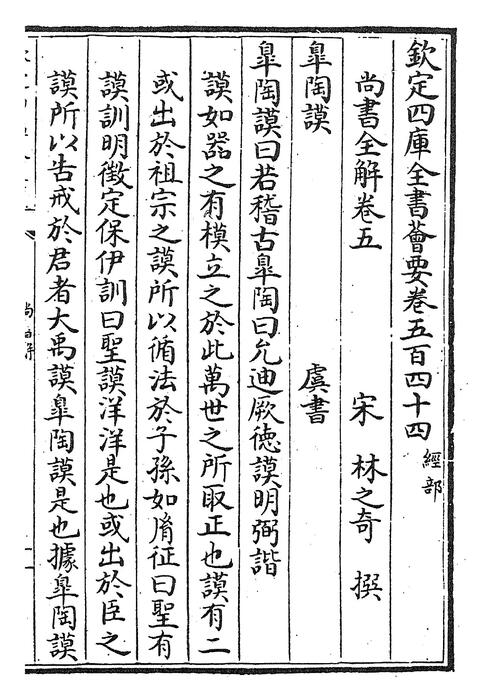 欽定四庫全書薈要卷五百四十四 經部
尚書全解卷五 宋 林之奇 撰
皐陶謨 虞書
皐陶謨曰若稽古皐陶曰允迪厥德謨明弼諧
謨如器之有模立之於此萬世之所取正也謨有二
或出於祖宗之謨所以脩法於子孫如胤征曰聖有
謨訓明徵定保伊訓曰聖謨洋洋是也或出於臣之
謨所以告戒於君者大禹謨皐陶謨是也據皐陶謨